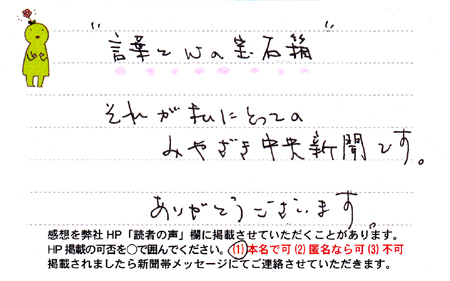 "言葉とWの宝石箱"
それが私にとっての
みやざき中央新聞です。
ありがとうございます。
感想を弊社HP「読者の声」欄に掲載させていただくことがあります。
HP掲載の可否を○で囲んでください。(1)本名で可(2)匿名なら可(3)不可
掲載されましたら新聞帯メッセージにてご連絡させていただきます。